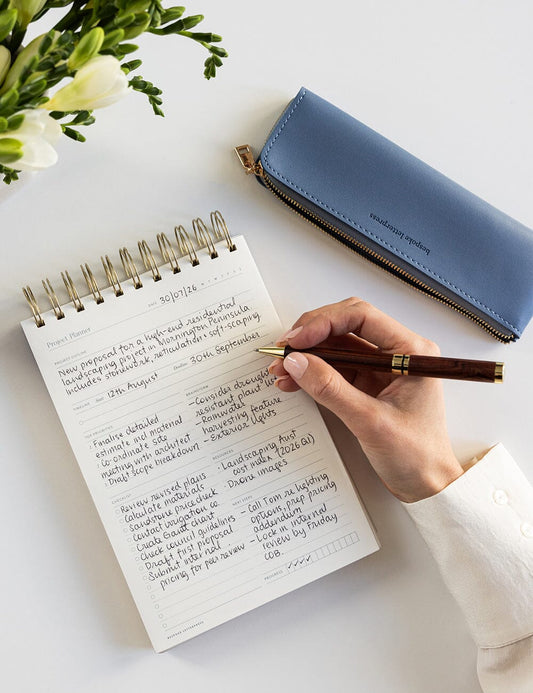 bespoke letterpress
Project Planner
DATE 30/07/26 M T W T F S S
PROJECT OUTLINE
New proposal for a high-end residential
landscaping project in Mornington Peninsula
Includes stonework, reticulation + soft-scaping.
TIMELINE Start 12th August Deadline 30th September
TOP PRIORITIES
· Finalise detailed
estimate and material
· Co-ordinate site
meeting with architect
· Draft scope breakdown
BRAINSTORM
- Consider drought
resistant plant
- Rainwater
harvesting feature
- Exterior lights
RESOURCES
· Landscaping Aust
cost index (2026 Q1)
· Drone images
CHECKLIST
Review revised plans
Calculate materials
Sandstone price check
Contact irrigation co.
Create Gantt chart
Check council guidelines
Draft first proposal
Submit internal
pricing for peer review
NEXT STEPS
- Call Tom re lighting
options, prep pricing
addendum
- Lock in internal
review by Friday
COB.
PROGRESS
BESPOKE LETTERPRESS